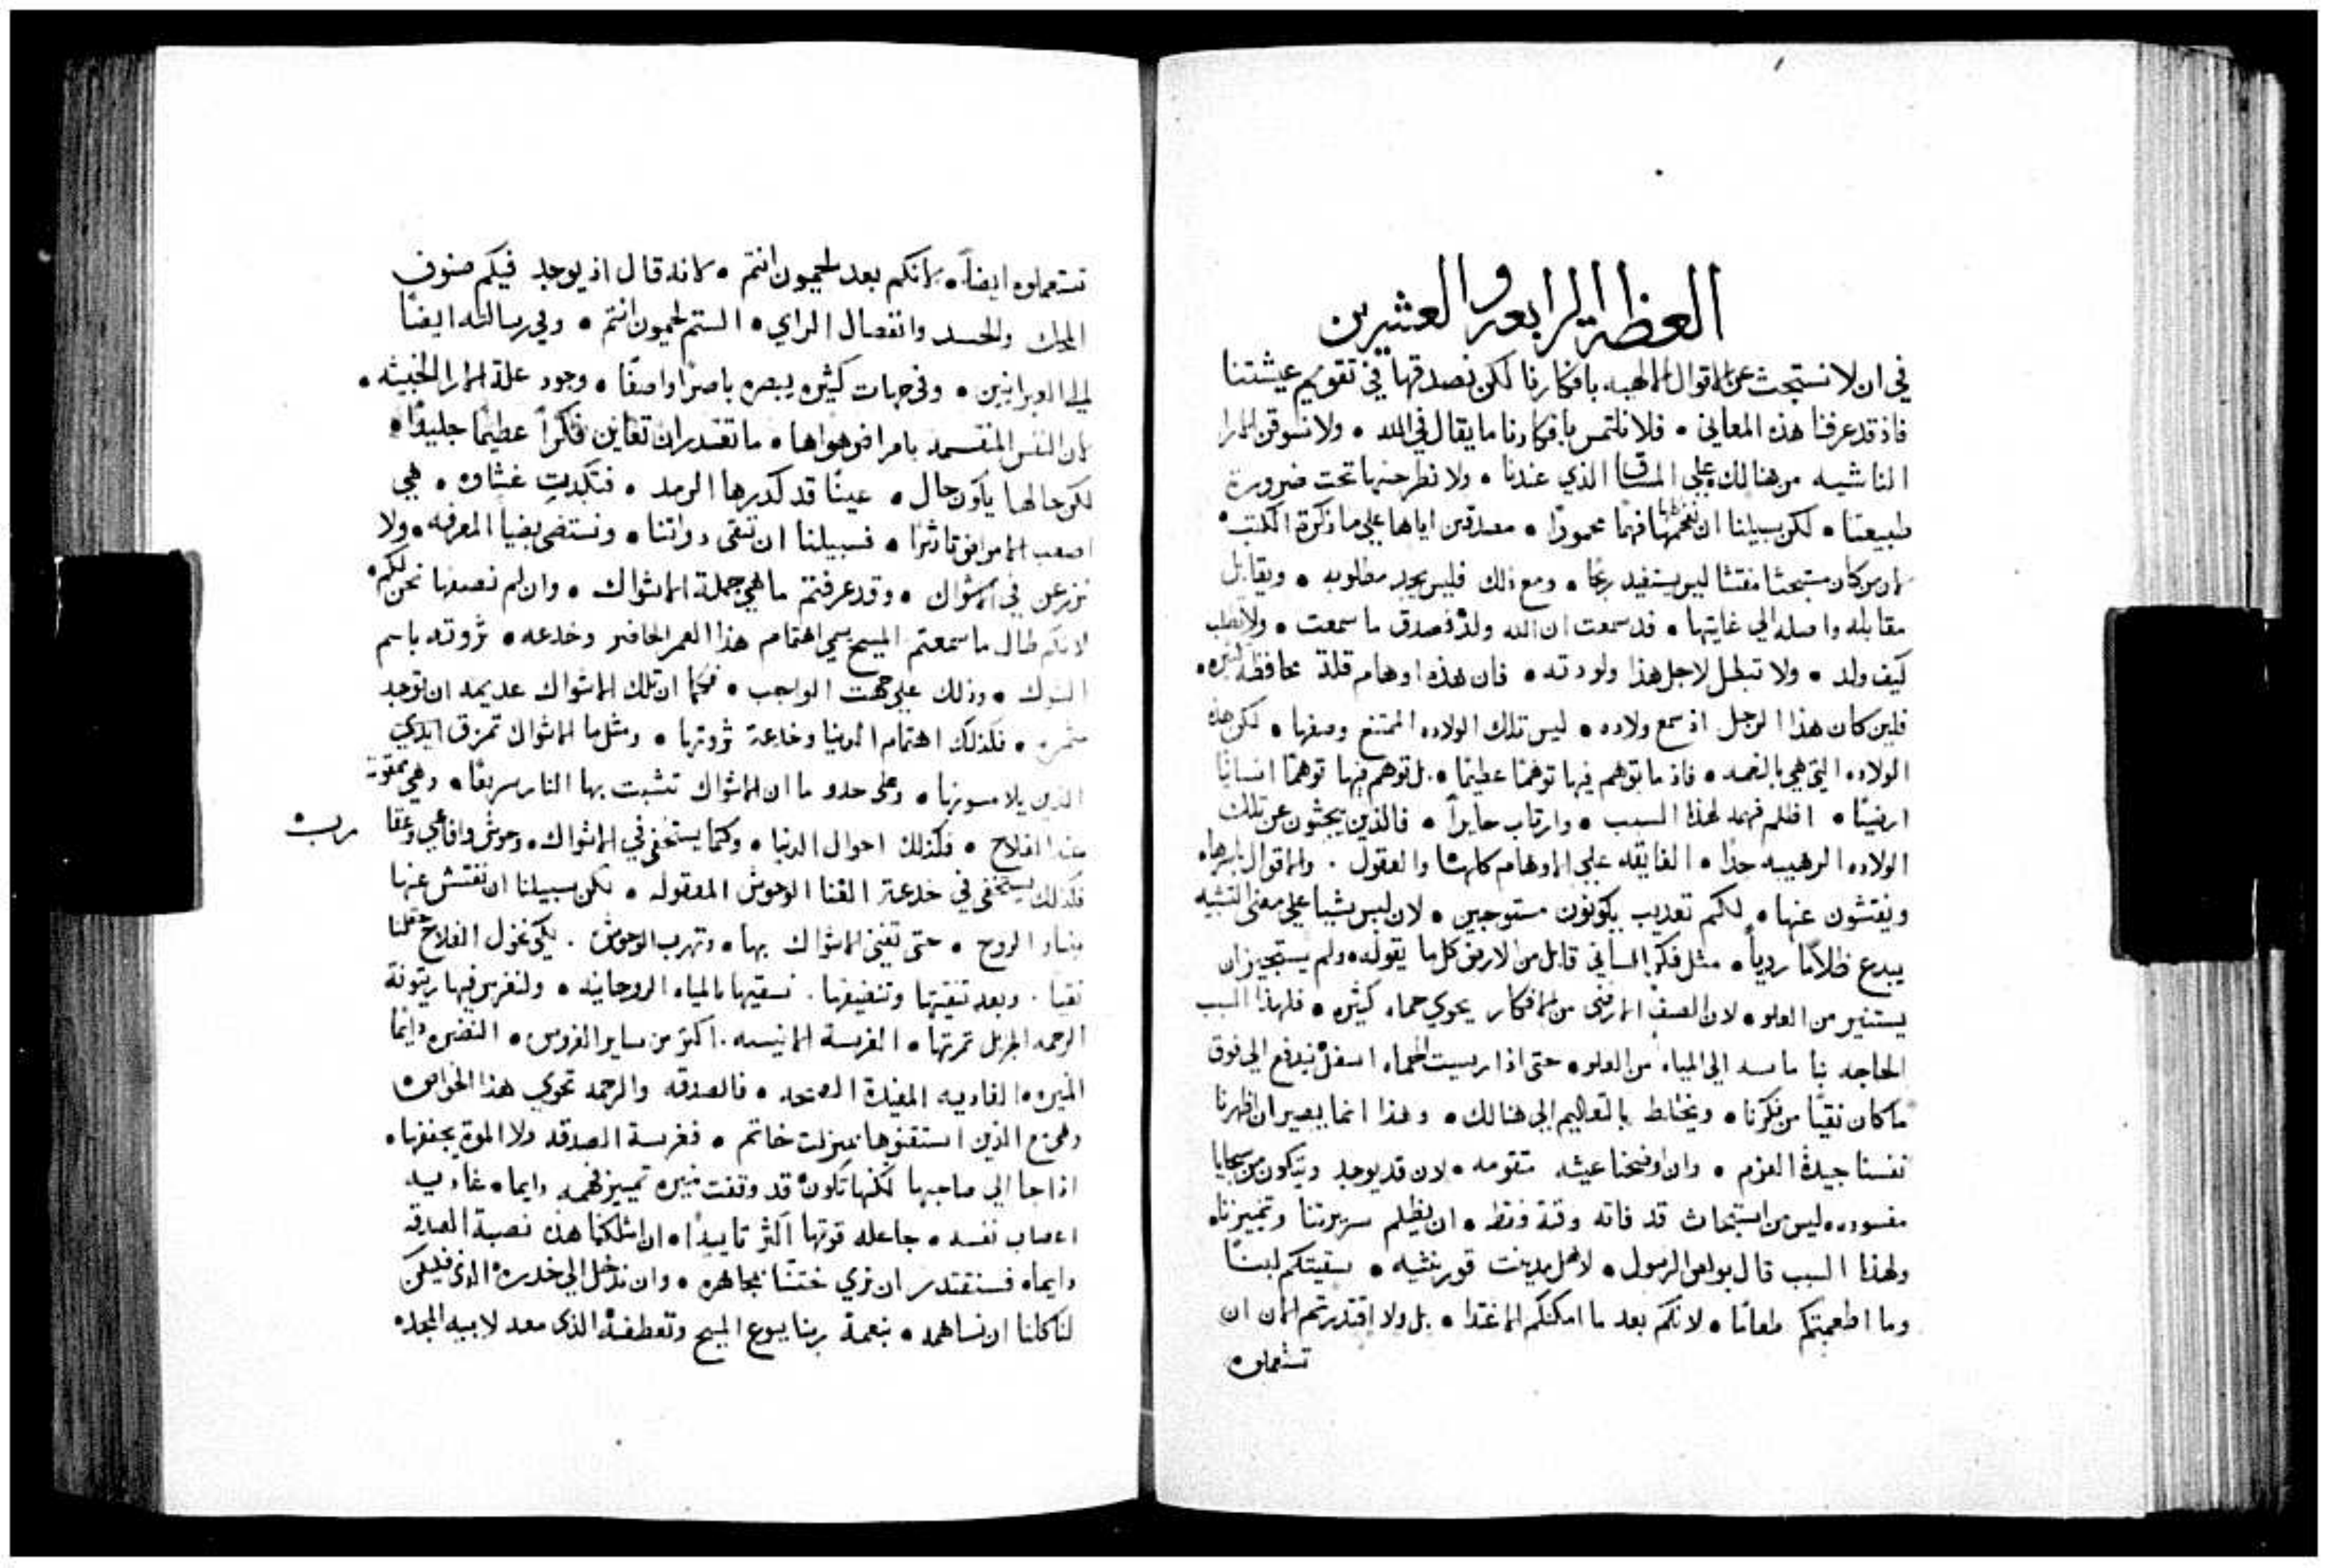 العظة الرابعه والعشرين
في ان لا نستبحث عن الاقوال الالهيه بافكارنا لكن نصدقها في تقويم عيشتنا
فاذ قد عرفنا هذه المعاني • فلا نلتمس بافكارنا ما يقال في الله • ولا نسوقن الارا
الناشيه من هنالك علي الذي عندنا • ولا نطرحنها تحت ضرورة
طبيعتنا • لكن سبيلنا ان نفهمها فهمًا محمودًا • مصدقين اياها علي ما ذكرة الكتب •
لان من كان مستبحثا مفتشا ليس يستفيد ربحًا • ومع ذلك فليس يجد مطلوبه • ويقابل
مقابله واصله الي غايتها • قد سمعت ان الله ولدَ فصدق ما سمعت • ولا تطلب
كيف ولد • ولا تبطل لاجل هذا ولودته • فان هذه اوهام قلة محافظه كثيره •
فلين كان هذا الرجل اذ سمع ولاده • ليس تلك الولاده الممتنع وصفها • لكن هذه
الولاده التي هي بالنعمه • فاذ ما توهم فيها توهمًا عظيمًا • بل توهم فيها توهمًا انسانيًا
ارضيًا • اظلم فهمه لهذا السبب • وارتاب حايرًا • فالذين يبحثون عن تلك
الولاده الرهيبه جدًا • الفايقه علي الاوهام كلها والعقول • والاقوال باسرها •
ويفتشون عنها • لكم تعديب يكونون مستوجبين • لان ليس شيا علي معني التشبيه
يبدع ظلامًا رديًا • مثل فكر انساني قايل من الارض كل ما يقوله • ولم يستجيز ان
يستنير من العلو • لان الصنف الارضي من الافكار يحوي حماه كثيره • فلهذا السبب
الحاجه بنا ماسه الي المياه من العلو • حتى اذا رسيت الحماه اسفل يندفع الي فوق
ما كان نقيًا من فكرنا • ويختلط بالتعاليم الي هنالك • وهذا انما يصير ان اظهرنا
نفسنا جيدة العزم • وان اوضحنا عيشه متقومه • لان قد يوجد ويتكون من سجايا
مفسوده ليس من استبحاث قد فاته وقته فقط • ان يظلم سريرتنا وتمييزنا •
ولهذا السبب قال بولس الرسول • لاهل مدينة قورنثيه • سقيتكم لبنًا
وما اطعمتكم طعامًا • لانكم بعد ما امكنكم الاغتدا • بل ولا اقتدرتم الان ان
تستعملوه
تستعملوه ايضاً • لانكم بعد لحميون انتم • لانه قال اذ يوجد فيكم صنوف
المحك والحسد وانفصال الراي • الستم لحميون انتم • وفي رسالته ايضًا
الي العبرانيين • وفي جهات كثيره يبصره باصرًا واصفًا • وجود علة الارا الخبيثه •
لان النفس المنقسمه بامراض هواها • ما تقتدر ان تعاين فكراً عظيمًا جليدًا •
لكن حالها يكون حال • عينًا قد كدرها الرمد • فتكبدت غشاوه • هي
اصعب الامراض تاثرًا • فسبيلنا ان ننقى دواتنا • ونستضي بضيا المعرفه • ولا
نزرعن في الاشواك • وقد عرفتم ما هي جملة الاشواك • وان لم نصفها نحن لكم •
لانكم طال ما سمعتم المسيح يسمي اهتمام هذا العمر الحاضر وخدعه • ثروته باسم
الشوك • وذلك علي جهت الواجب • فكما ان تلك الاشواك عديمه ان توجد
مثمره • فكذلك اهتمام الدنيا وخدعة ثروتها • ومثل ما الاشواك تمزق ايدي
الذين يلامسونها • وعلى حدو ما ان الاشواك تتشبت بها النار سريعًا • وهي ممقوتة
عند الفلاح • فكذلك احوال الدنيا • وكما يستخفى في الاشواك • وحوش وافاعي وعقا
رب
فكذلك يستخفى في خدعة الغنا الوحوش المعقوله • لكن سبيلنا ان نفتش عنها
بنار الروح • حتى تفني الاشواك بها • وتهرب الوحوش • لكي نخول الفلاح حقلنا
نقيا • وبعد تنقيتها وتنضيفها • نسقيها بالمياه الروحانيه • ولنغرس فيها زيتونة
الرحمه الجزيل ثمرتها • الغرسة الانيسه • اكثر من ساير الغروس • النضيره دايمًا
المنيره الغاديه المفيدة الصحه • فالصدقه والرحمه تحوي هذا الخواص •
وهي مع الذين استقنوها بمنزلت خاتم • فغرسة الصدقه ولا الموت يجففها •
اذا جا الي صاحبها لكنها تكون قد وقفت منيره تمييز فهمه دايما • غاديه
اعصاب نفسه • جاعله قوتها اكثر تاييدًا • ان امتلكنا هذه نصبة الصدقه
دايما • فسنقتدر ان نري ختننا مجاهره • وان ندخل الي خدره الذى فليكن
لنا كلنا ان نساهمه • بنعمة ربنا يسوع المسيح وتعطفه الذى معه لابيه المجد •